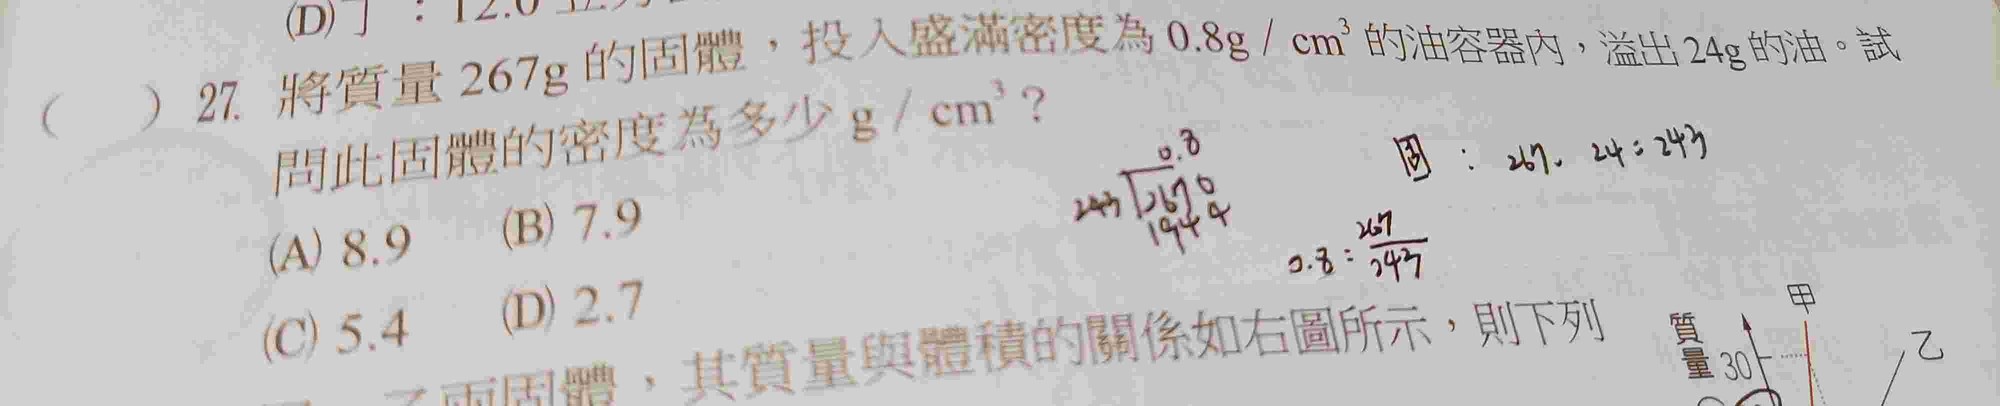 (D)丁：12.0立方
(　) 27. 將質量 267g 的固體，投入盛滿密度為 0.8g / cm³ 的油容器內，溢出 24g 的油。試
問此固體的密度為多少 g / cm³？
(A) 8.9 (B) 7.9
(C) 5.4 (D) 2.7
0.8
243 2670
1944
固：267-24=243
0.8=267/243
兩固體，其質量與體積的關係如右圖所示，則下列
質量
30
甲
乙